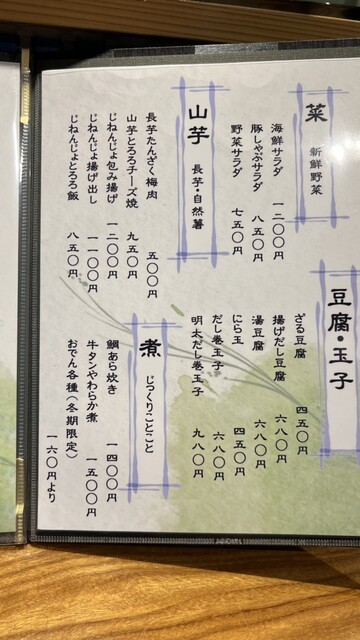 菜
新鮮野菜
海鮮サラダ 一二〇〇円
豚しゃぶサラダ 八五〇円
野菜サラダ 七五〇円
山芋
長芋・自然薯
長芋たんざく梅肉 五〇〇円
山芋とろろチーズ焼 九五〇円
じねんじょ包み揚げ 一二〇〇円
じねんじょ揚げ出し 一一〇〇円
じねんじょとろろ飯 八五〇円
豆腐・玉子
ざる豆腐 四五〇円
揚げだし豆腐 六八〇円
湯豆腐 六八〇円
にら玉 四五〇円
だし巻玉子 六八〇円
明太だし巻玉子 九八〇円
煮
じっくりことこと
鯛あら炊き 一四〇〇円
牛タンやわらか煮 一五〇〇円
おでん各種(冬期限定)
一六〇円より